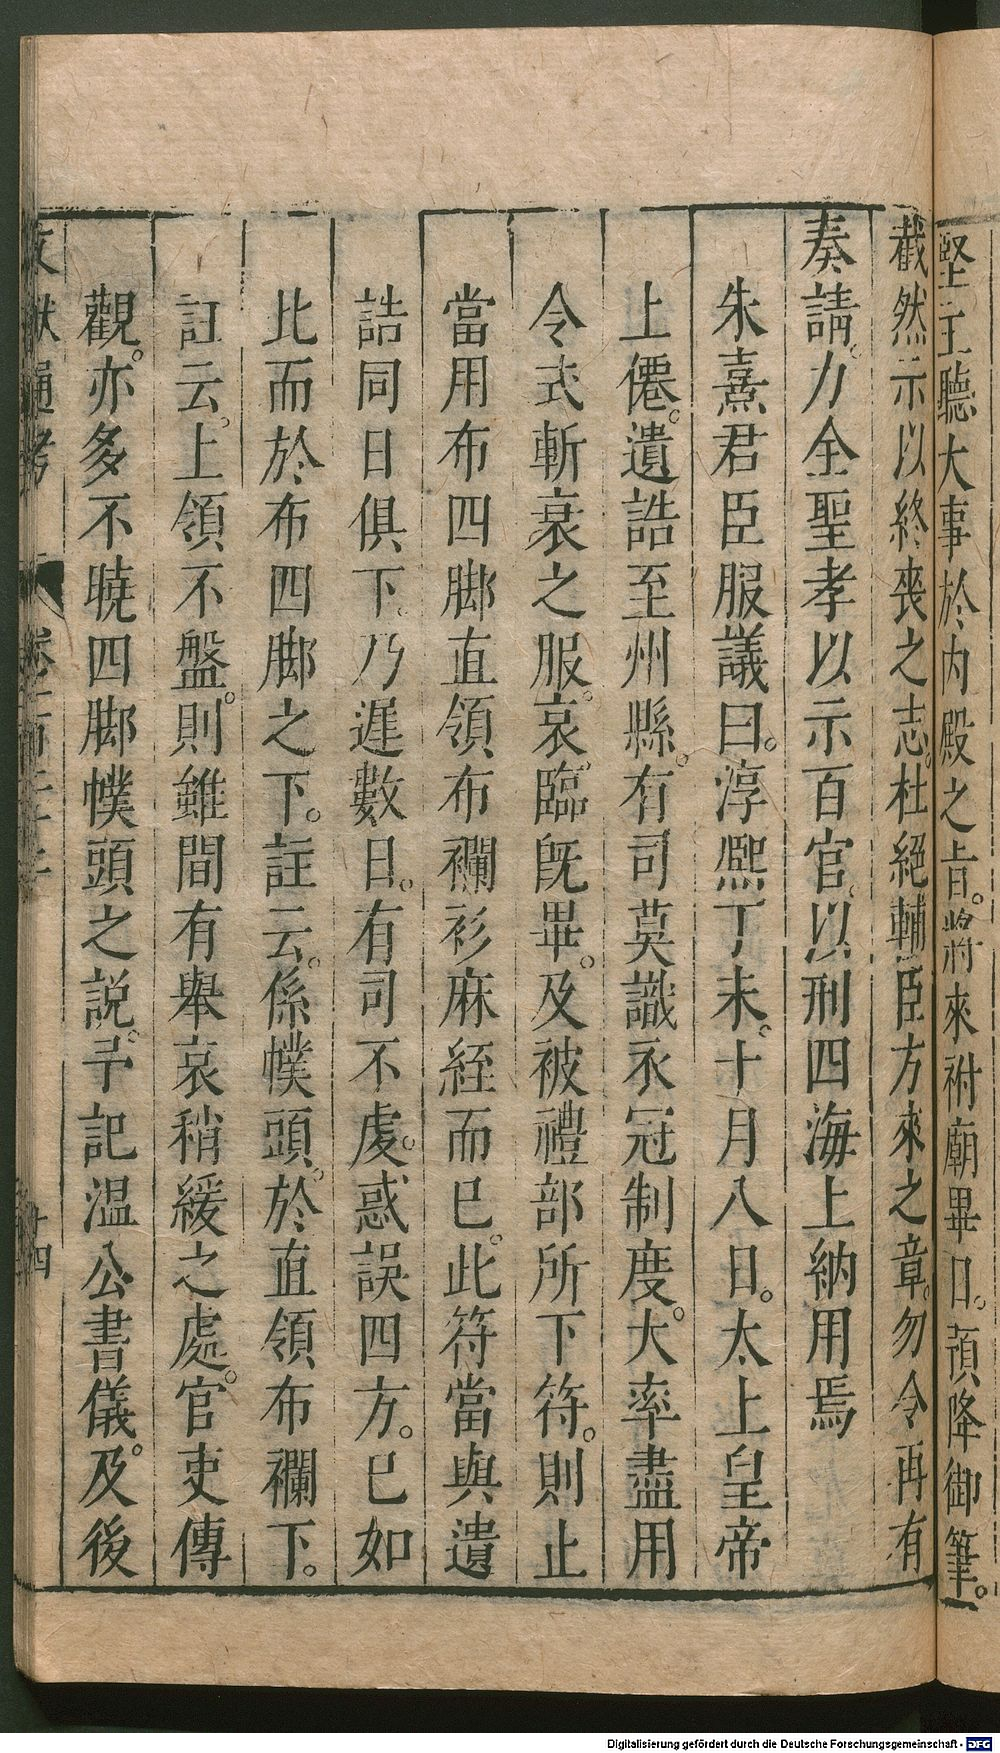 堅主聽大事於內殿之旨。將來祔廟畢日。預降御筆。
截然示以終喪之志。杜絕輔臣方來之章。勿令再有
奏請。力全聖孝以示百官。以刑四海上納用焉
朱熹君臣服議曰。淳熙丁未。十月八日。太上皇帝
上僊。遺誥至州縣。有司莫識衣冠制度。大率盡用
令式斬衰之服。哀臨既畢。及被禮部所下符。則止
當用布四脚直領布襴衫麻絰而已。此符當與遺
誥同日俱下。乃遲數日。有司不虔。惑誤四方。已如
此而於布四脚之下。註云。係幞頭。於直領布襴下。
註云。上領不盤。則雖間有舉哀稍緩之處。官吏傳
觀。亦多不曉四脚幞頭之說。予記溫公書儀。及後
文獻通考
卷一百二十二
十四
Digitalisierung gefördert durch die Deutsche Forschungsgemeinschaft - DFG